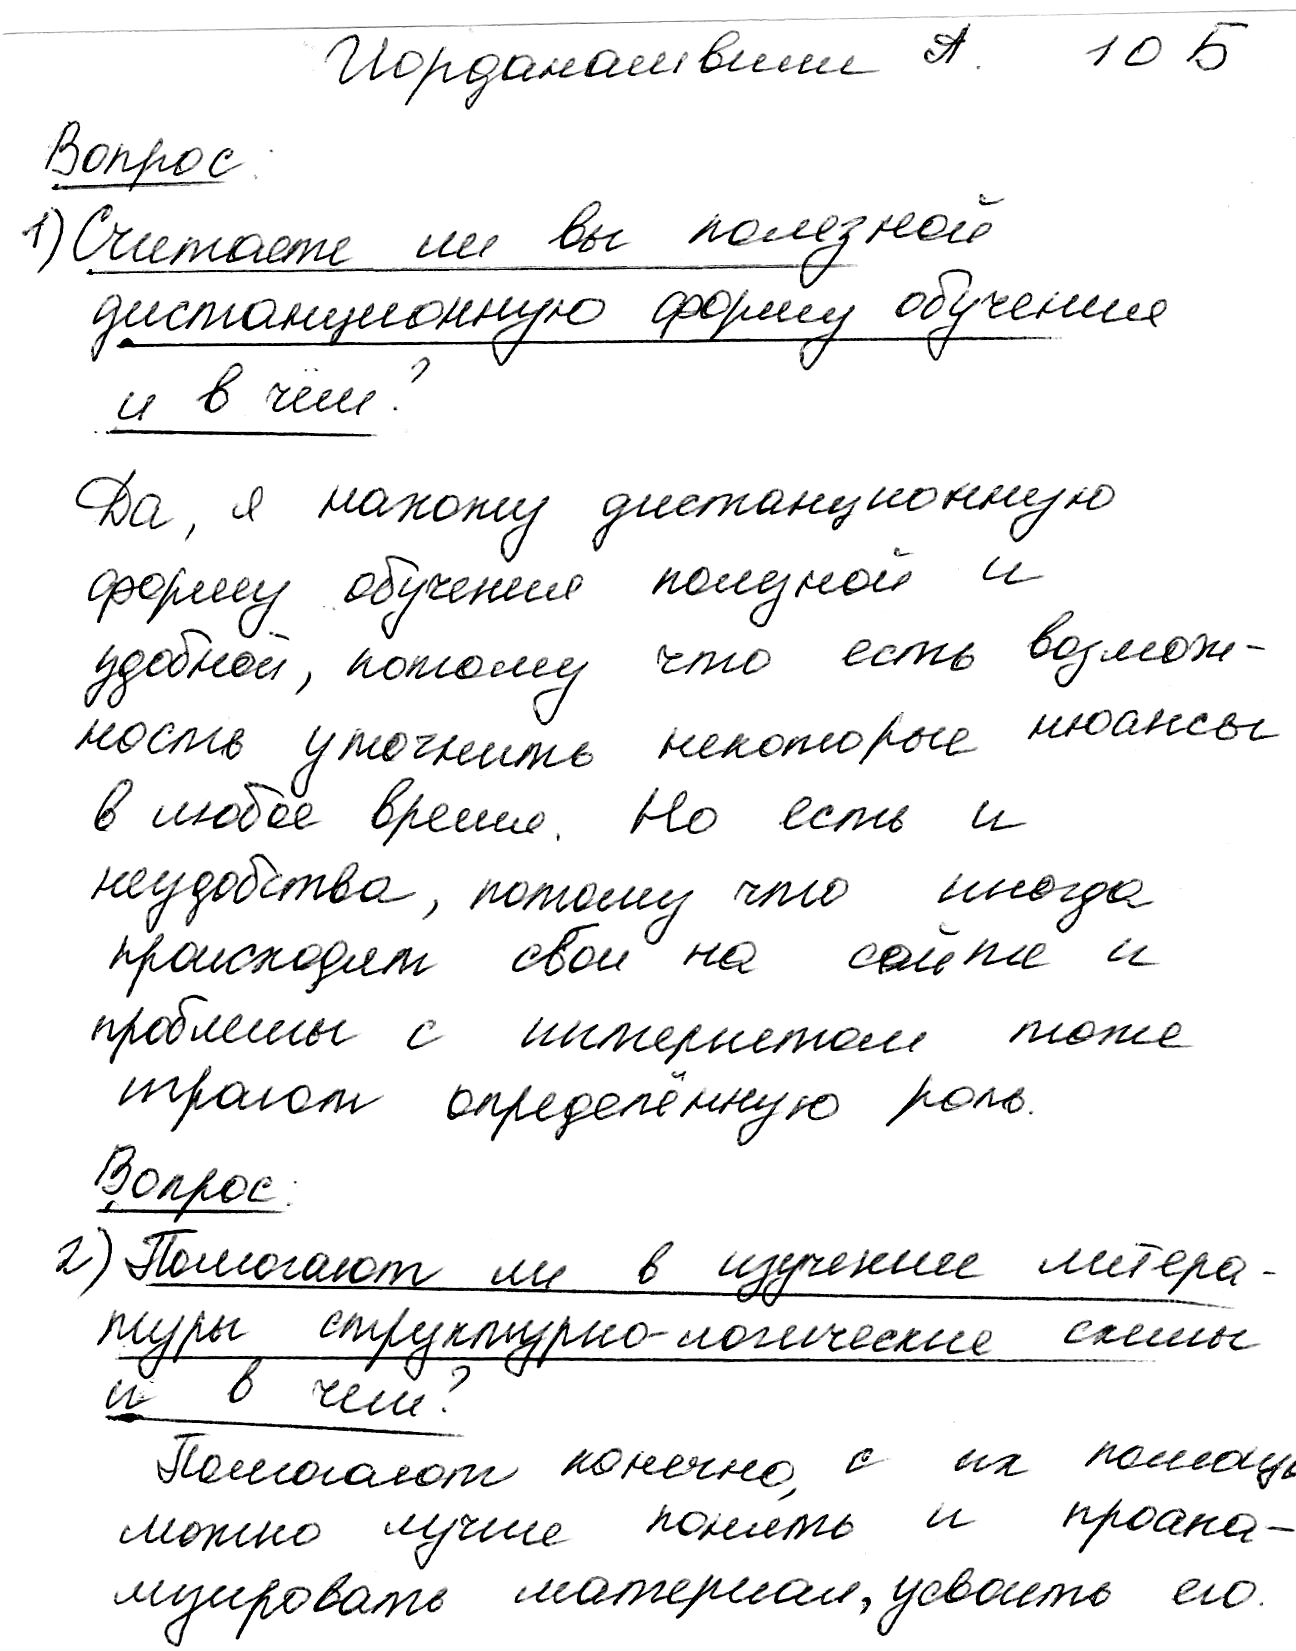 Иорданашвили А. 10 Б
Вопрос:
1) Считаете ли вы полезной
дистанционную форму обучения
и в чём?
Да, я нахожу дистанционную
форму обучения полезной и
удобной, потому что есть возмож-
ность уточнить некоторые нюансы
в любое время. Но есть и
неудобства, потому что иногда
происходят сбои на сайте и
проблемы с интернетом тоже
играют определённую роль.
Вопрос:
2) Помогают ли в изучении литера-
туры структурно-логические схемы
и в чем?
Помогают конечно, с их помощью
можно лучше понять и проана-
лизировать материал, усвоить его.